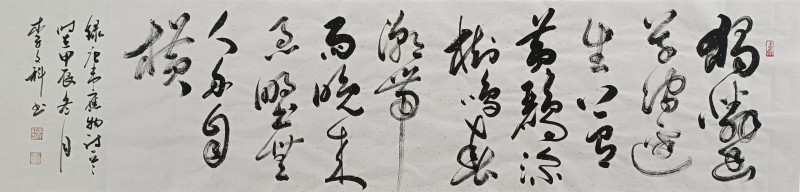 獨憐幽
草澗邊
生上有
黄鸝深
樹鳴春
潮帶
雨晚来
急野渡無
人舟自
橫
録唐韋應物诗一首
时在甲辰冬月
李文科書